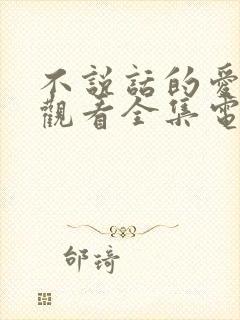 不説話的愛
觀看全集電
邰琦